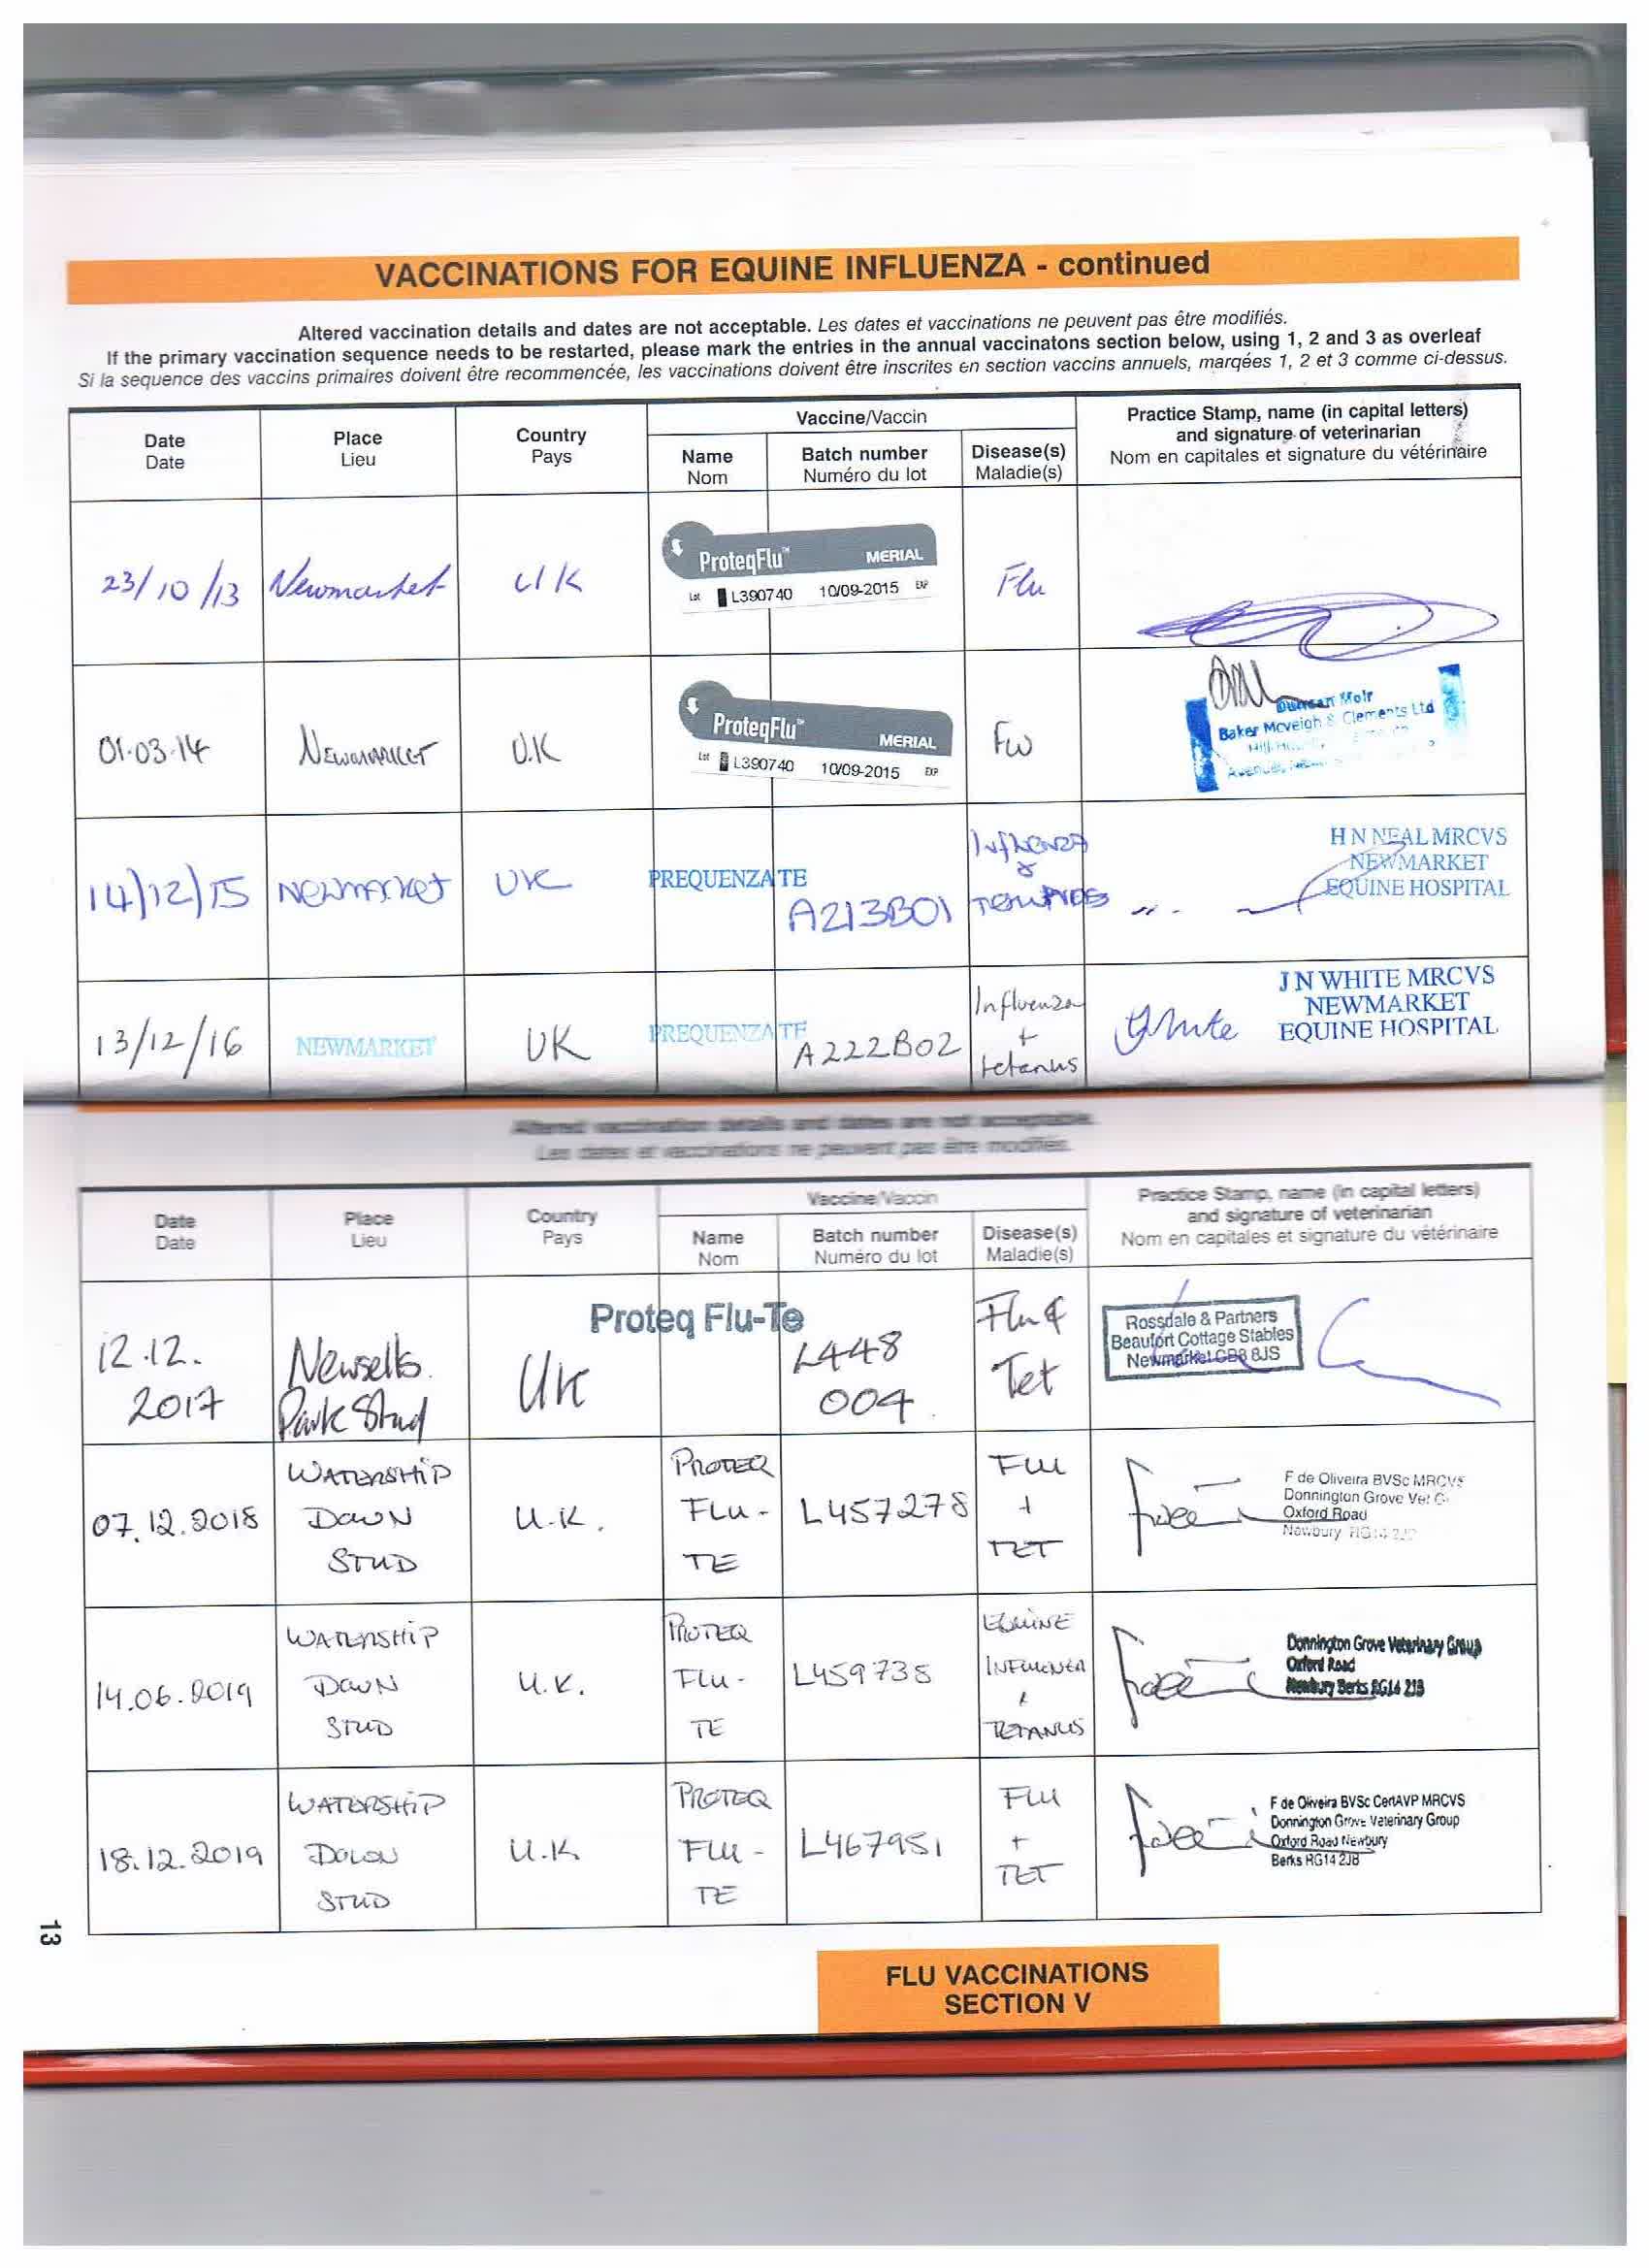 VACCINATIONS FOR EQUINE INFLUENZA - continued
Altered vaccination details and dates are not acceptable. Les dates et vaccinations ne peuvent pas être modifiés.
If the primary vaccination sequence needs to be restarted, please mark the entries in the annual vaccinatons section below, using 1, 2 and 3 as overleaf
Si la sequence des vaccins primaires doivent être recommencée, les vaccinations doivent être inscrites en section vaccins annuels, marqées 1, 2 et 3 comme ci-dessus.
Date
Date
Place
Lieu
Country
Pays
Vaccine/Vaccin
Name
Nom
Batch number
Numéro du lot
Disease(s)
Maladie(s)
Practice Stamp, name (in capital letters)
and signature of veterinarian
Nom en capitales et signature du vétérinaire
23/10/13
Newmarket
UK
ProteqFlu™ MERIAL
Lot L390740 10/09-2015 EXP
Flu
01.03.14
NEWMARKET
U.K
ProteqFlu™ MERIAL
Lot L390740 10/09-2015 EXP
Flu
Duncan Moir
Baker Mcveigh & Clements Ltd
14/12/15
NEWMARKET
UK
PREQUENZA TE
A213B01
Influenza
&
H N NEAL MRCVS
NEWMARKET
EQUINE HOSPITAL
13/12/16
NEWMARKET
UK
PREQUENZA TE
A222B02
Influenza
+
tetanus
JWhite
J N WHITE MRCVS
NEWMARKET
EQUINE HOSPITAL
Altered vaccination details and dates are not acceptable.
Les dates et vaccinations ne peuvent pas être modifiés.
Date
Date
Place
Lieu
Country
Pays
Vaccine/Vaccin
Name
Nom
Batch number
Numéro du lot
Disease(s)
Maladie(s)
Practice Stamp, name (in capital letters)
and signature of veterinarian
Nom en capitales et signature du vétérinaire
12.12.
2017
Newsells
Park Stud
UK
Proteq Flu-Te
L448
004.
Flu &
Tet
Rossdale & Partners
Beaufort Cottage Stables
Newmarket CB8 8JS
07.12.2018
WATERSHIP
DOWN
STUD
U.K.
PROTEQ
FLU-
TE
L457278
FLU
+
TET
F de Oliveira BVSc MRCVS
Donnington Grove Vet
Oxford Road
Newbury RG14
14.06.2019
WATERSHIP
DOWN
STUD
U.K.
PROTEQ
FLU-
TE
L459735
EQUINE
INFLUENZA
+
TETANUS
Donnington Grove Veterinary Group
Oxford Road
Newbury Berks RG14 2JB
18.12.2019
WATERSHIP
DOWN
STUD
U.K
PROTEQ
FLU-
TE
L467951
FLU
+
TET
F de Oliveira BVSc CertAVP MRCVS
Donnington Grove Veterinary Group
Oxford Road Newbury
Berks RG14 2JB
13
FLU VACCINATIONS
SECTION V